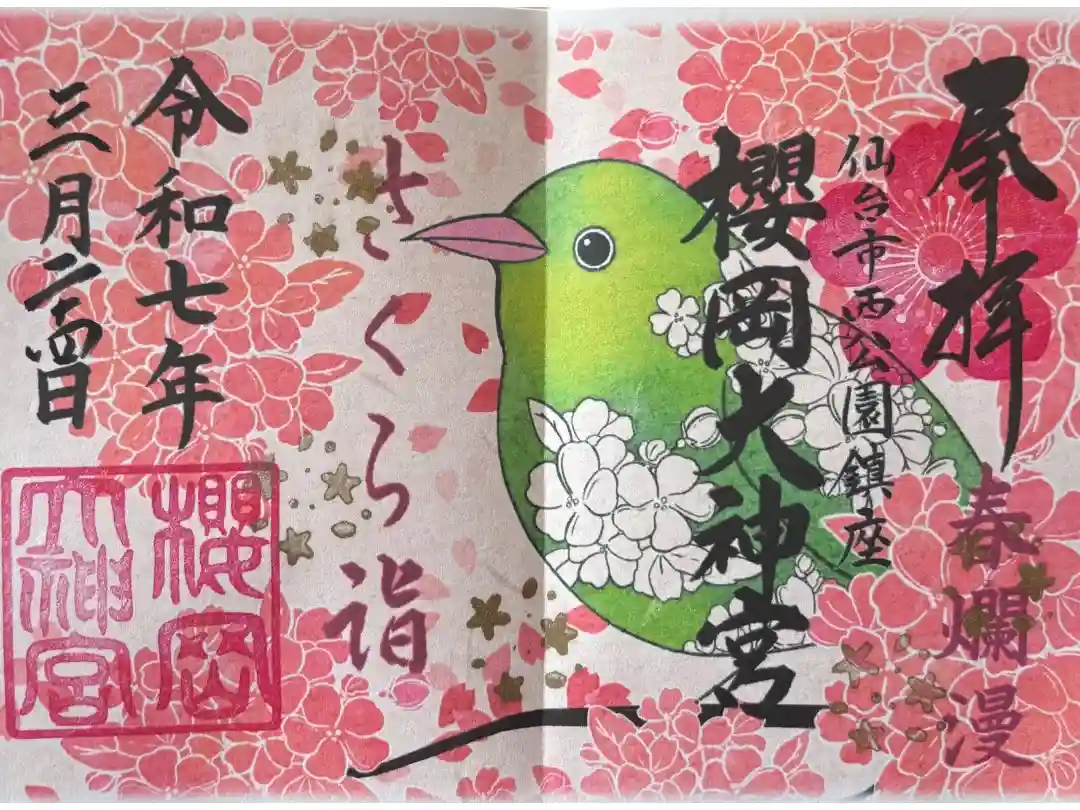 奉拝
春爛漫
仙台市西公園鎮座
櫻岡大神宮
さくら詣
令和七年
三月二十四日
櫻岡
大神宮